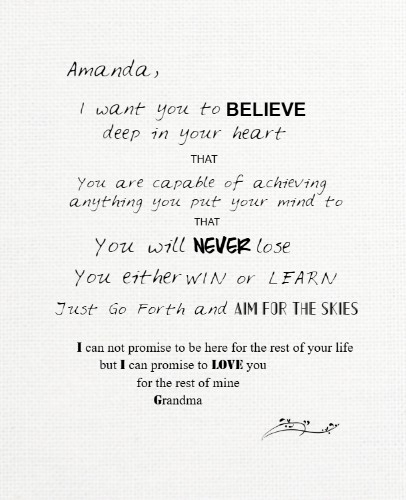 Amanda,
I want you to BELIEVE
deep in your heart
THAT
You are capable of achieving
anything you put your mind to
THAT
You will NEVER lose
You either WIN or LEARN
Just Go Forth and AIM FOR THE SKIES
I can not promise to be here for the rest of your life
but I can promise to LOVE you
for the rest of mine
Grandma